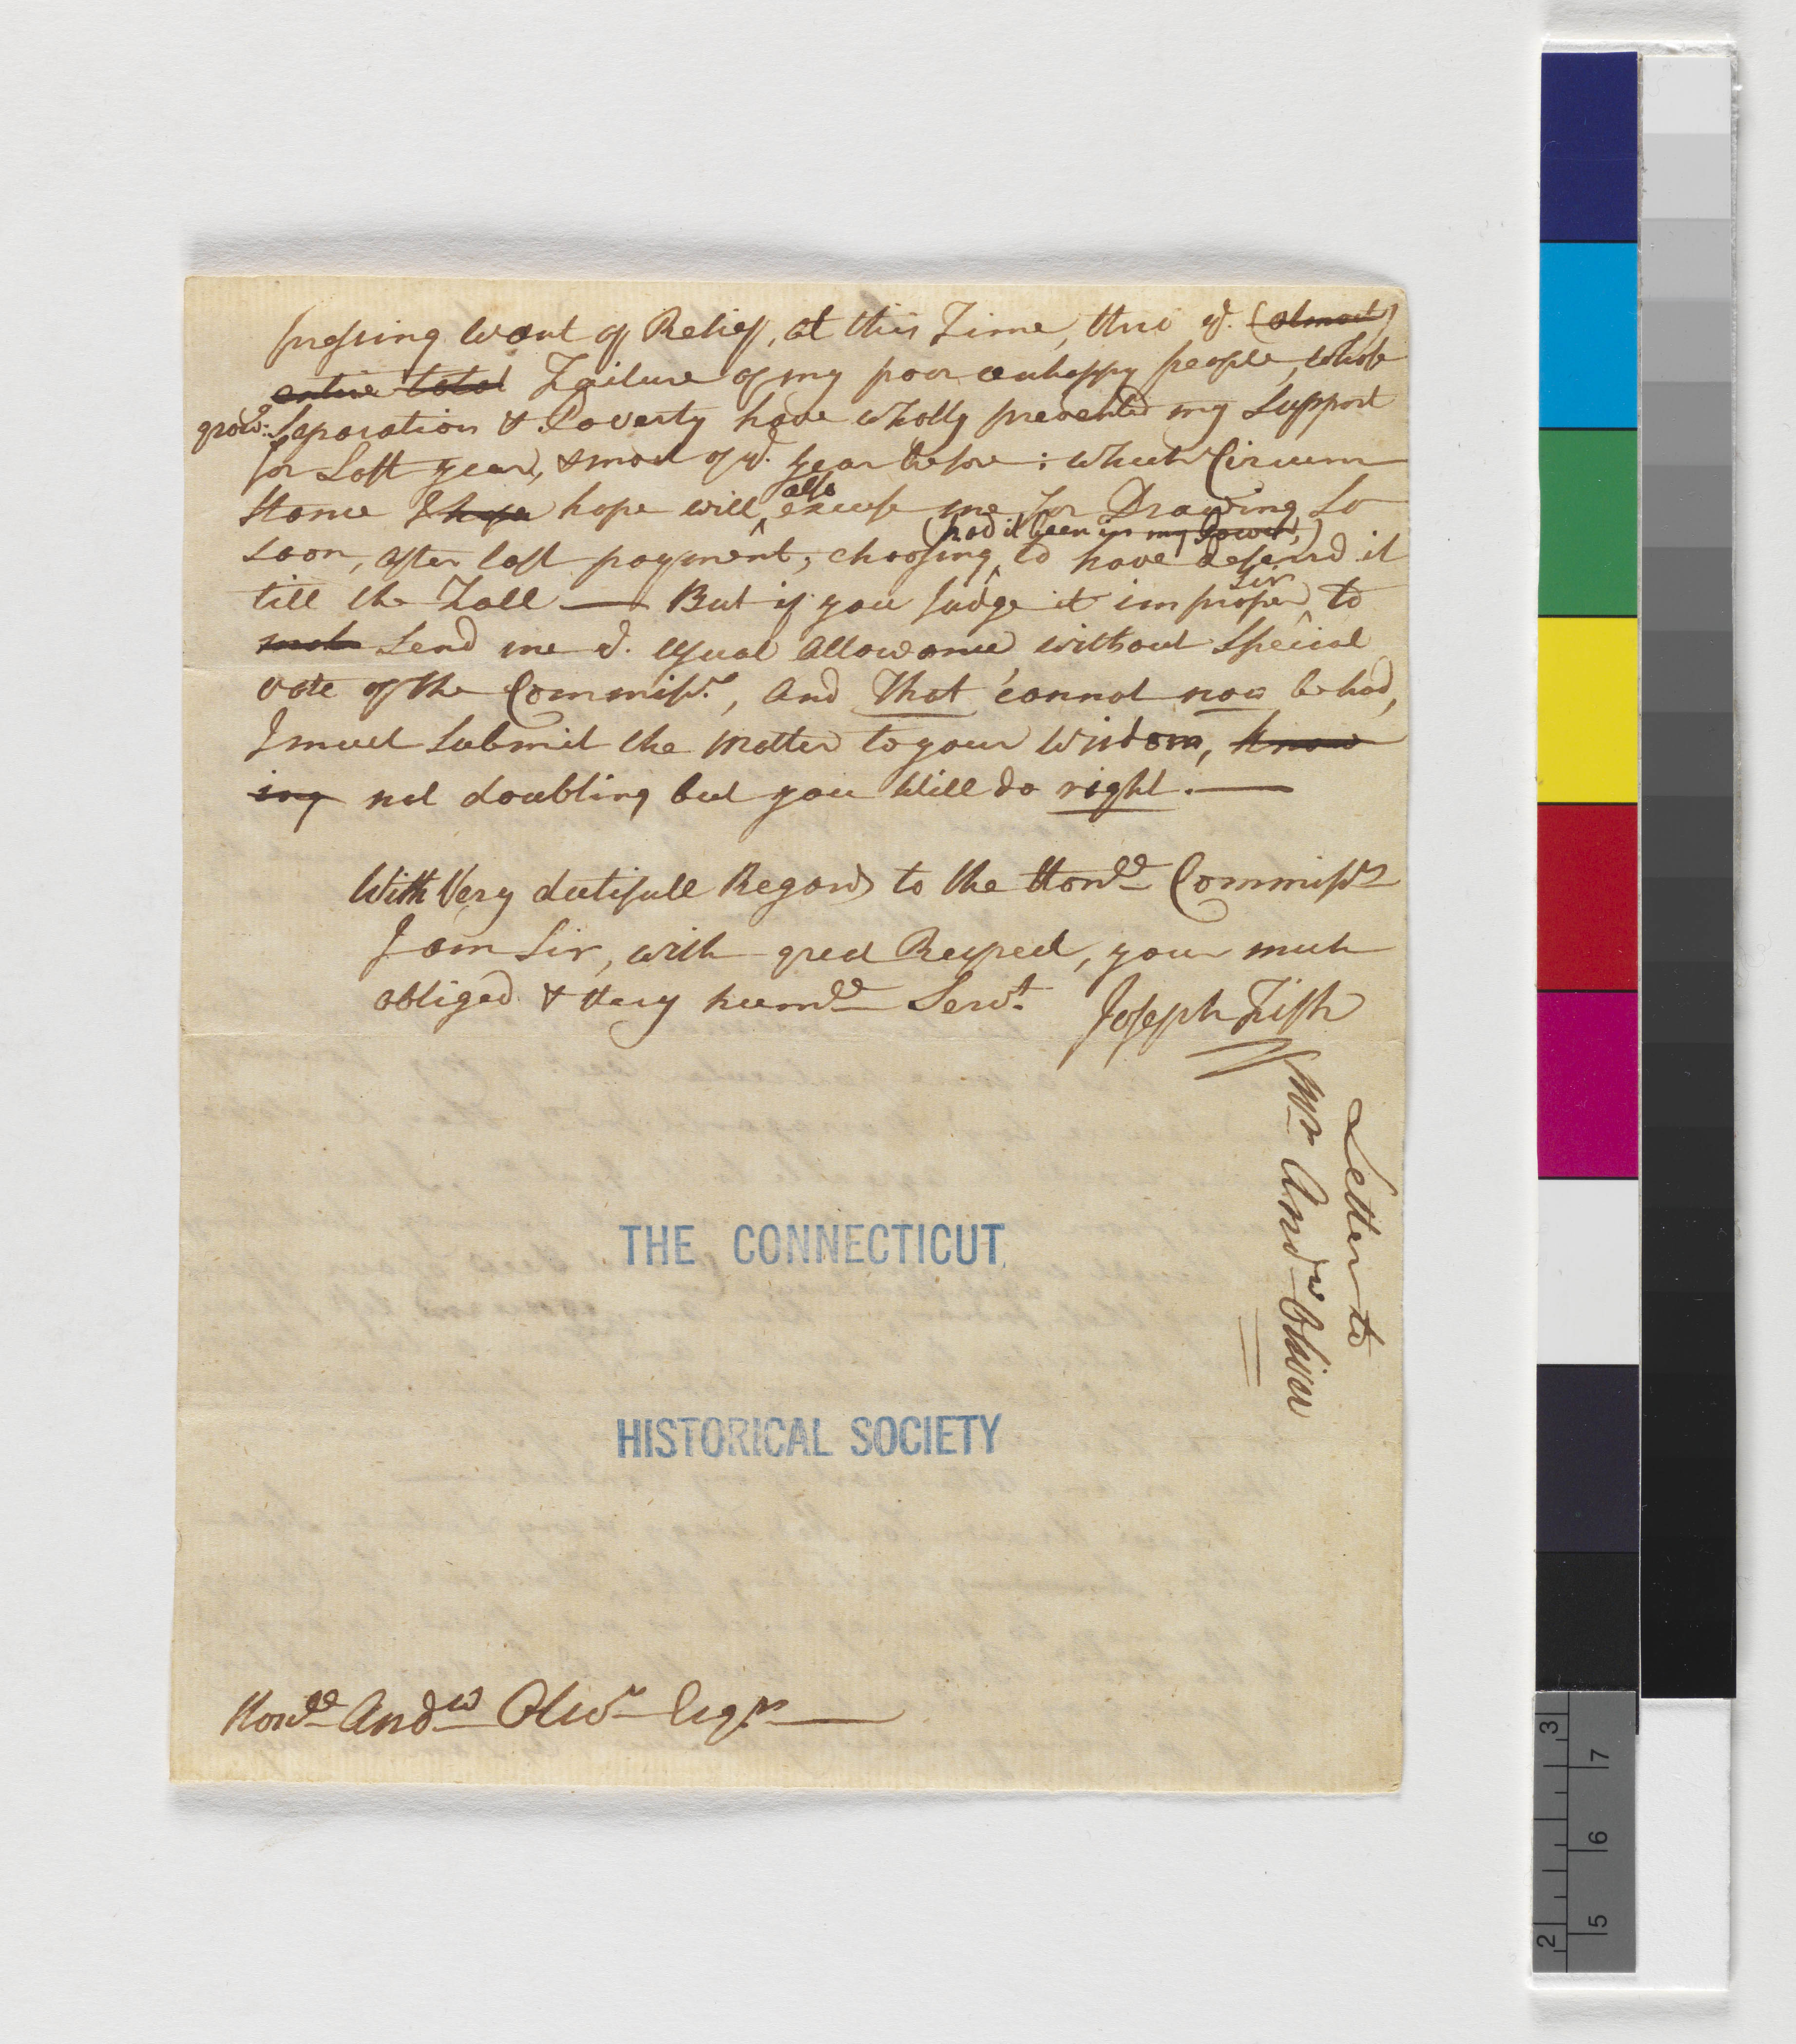 pressing want of Relief, at this Time, thro' ye. (almost)
entire total Failure of my poor unhappy people, whose
grow:g Separation & Poverty have wholly prevented my Support
for Last year, & most of ye. year before: which Circum
stance I hope hope will also excuse me, for Drawing so
soon, after last payment; choosing (had it been in my Power,) to have deferrd it
till the Fall — But if you Judge it improper Sir, to
send me ye. usual allowance, without Special
vote of the Commissrs, and That cannot now be had,
I must submit the matter to your Wisdom, know
ing not doubting but you Will do right. —
With Very dutifull Regards to the Honble Commissrs
I am Sir, with great Respect, your much
obliged & very humble Servt. Joseph Fish
Letter to
Mr Andw Oliver
THE CONNECTICUT
HISTORICAL SOCIETY
Honble Andw Olivr Esqr —
3
7
6
5
2